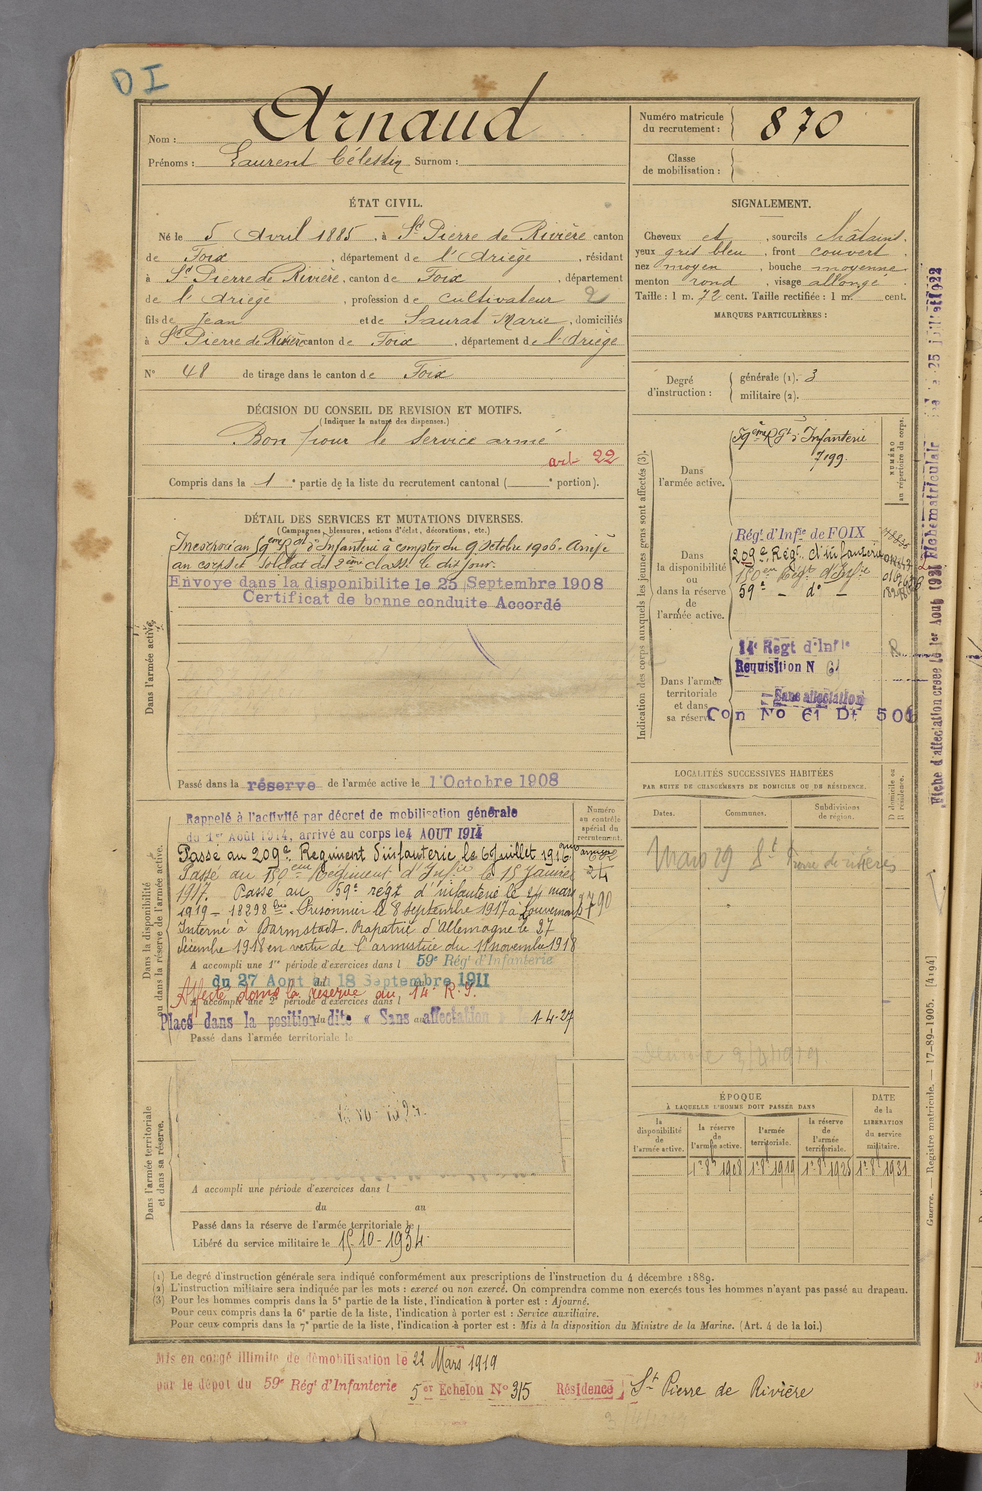 DI
Nom : Arnaud
Prénoms : Laurent Célestin Surnom :
Numéro matricule
du recrutement : 870
Classe
de mobilisation :
ÉTAT CIVIL.
Né le 5 Avril 1885, à St Pierre de Rivière canton
de Foix, département de l'Ariège, résidant
à St Pierre de Rivière, canton de Foix, département
de l'Ariège, profession de cultivateur 2
fils de Jean et de Saurat Marie, domiciliés
à St Pierre de Rivière canton de Foix, département de l'Ariège
N° 48 de tirage dans le canton de Foix
SIGNALEMENT.
Cheveux et , sourcils châtains.
yeux gris bleu, front couvert
nez moyen, bouche moyenne
menton rond, visage allongé.
Taille : 1 m. 72 cent. Taille rectifiée : 1 m. cent.
MARQUES PARTICULIÈRES :
Degré
d'instruction :
générale (1). 3
militaire (2).
DÉCISION DU CONSEIL DE REVISION ET MOTIFS.
(Indiquer la nature des dispenses.)
Bon pour le service armé
art 22
Compris dans la 1e partie de la liste du recrutement cantonal ( e portion).
DÉTAIL DES SERVICES ET MUTATIONS DIVERSES.
(Campagnes, blessures, actions d'éclat, décorations, etc.)
Dans l'armée active.
Incorporé au 59ème Rgt d'Infanterie à compter du 9 Octobre 1906. Arrivé
au corps et soldat de 2ème classe le dit jour.
Envoyé dans la disponibilité le 25 Septembre 1908
Certificat de bonne conduite Accordé
Passé dans la réserve de l'armée active le 1 Octobre 1908
Indication des corps auxquels les jeunes gens sont affectés (3).
NUMÉRO
au répertoire du corps.
Dans
l'armée active.
59ème Rgt d'Infanterie
7199
Dans
la disponibilité
ou
dans la réserve
de
l'armée active.
Régt d'Infie de FOIX
209e Régt d'infanterie
150em Régt d'Infie
59e – do –
Dans l'armée
territoriale
et dans
sa réserve.
14e Regt d'Infie
Requisition N 61
Sans affectation
Con No 61 Dt 501
Fiche d'affectation créée le 1er Aout 1921 Fiche matriculaire 25 juillet 1922
Dans la disponibilité
ou dans la réserve de l'armée active.
Numéro
au contrôle
spécial du
recrutement.
Rappelé à l'activité par décret de mobilisation générale
du 1er Août 1914, arrivé au corps le 4 AOUT 1914
Passé au 209e Régiment d'infanterie le 6 Juillet 1916
Passé au 150eme Régiment d'Infie le 15 Janvier
1917. Passé au 59e regt d'infanterie le 24 mars
1919 – 18298 bis. Prisonnier le 8 septembre 1917 à Louvemont
Interné à Darmstadt. Rapatrié d'Allemagne le 27
décembre 1918 en vertu de l'armistice du 11 novembre 1918
3790
A accompli une 1re période d'exercices dans l 59e Régt d'Infanterie
du 27 Aout au 18 Septembre 1911
Affecté dans la réserve du 14e R.I.
A accompli une 2e période d'exercices dans
Placé dans la position dite « Sans affectation » le 1-4-27
Passé dans l'armée territoriale le
LOCALITÉS SUCCESSIVES HABITÉES
PAR SUITE DE CHANGEMENTS DE DOMICILE OU DE RÉSIDENCE.
D domicile ou
R résidence.
Dates.
Communes.
Subdivisions
de région.
Mars 29 St Pierre de rivière
Dans l'armée territoriale
et dans sa réserve.
A accompli une période d'exercices dans l
du au
Passé dans la réserve de l'armée territoriale le
Libéré du service militaire le 15-10-1934
ÉPOQUE
À LAQUELLE L'HOMME DOIT PASSER DANS
DATE
de la
LIBÉRATION
du service
militaire.
la
disponibilité
de
l'armée active.
la réserve
de
l'armée active.
l'armée
territoriale.
la
réserve
de
l'armée
territoriale.
1er 8bre 1908 1er 8bre 1919 1er 8bre 1925 1er 8bre 1931
Guerre. — Registre matricule. — 17-89-1905. [4194]
(1) Le degré d'instruction générale sera indiqué conformément aux prescriptions de l'instruction du 4 décembre 1889.
(2) L'instruction militaire sera indiquée par les mots : exercé ou non exercé. On comprendra comme non exercés tous les hommes n'ayant pas passé au drapeau.
(3) Pour les hommes compris dans la 5e partie de la liste, l'indication à porter est : Ajourné.
Pour ceux compris dans la 6e partie de la liste, l'indication à porter est : Service auxiliaire.
Pour ceux compris dans la 7e partie de la liste, l'indication à porter est : Mis à la disposition du Ministre de la Marine. (Art. 4 de la loi.)
Mis en congé illimité de démobilisation le 22 Mars 1919
par le dépôt du 59e Régt d'Infanterie 5er Echelon No 315 Résidence St Pierre de Rivière